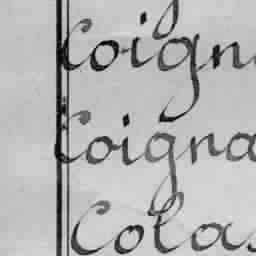 Coign
Coigna
Colas